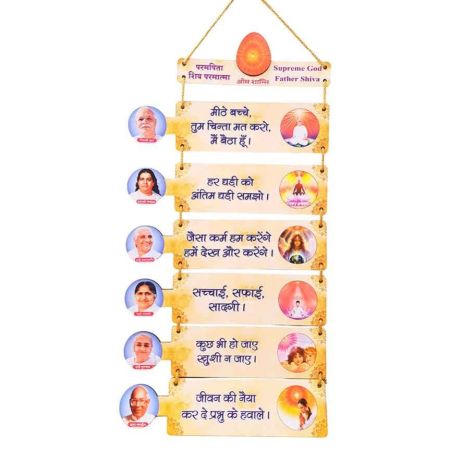 परमपिता
शिव परमात्मा
ओम शान्ति
Supreme God
Father Shiva
मीठे बच्चे,
तुम चिन्ता मत करो,
मैं बैठा हूँ।
हर घड़ी को
अंतिम घड़ी समझो।
जैसा कर्म हम करेंगे
हमें देख और करेंगे।
सच्चाई, सफाई,
सादगी।
कुछ भी हो जाए
खुशी न जाए।
जीवन की नैया
कर दे प्रभु के हवाले।